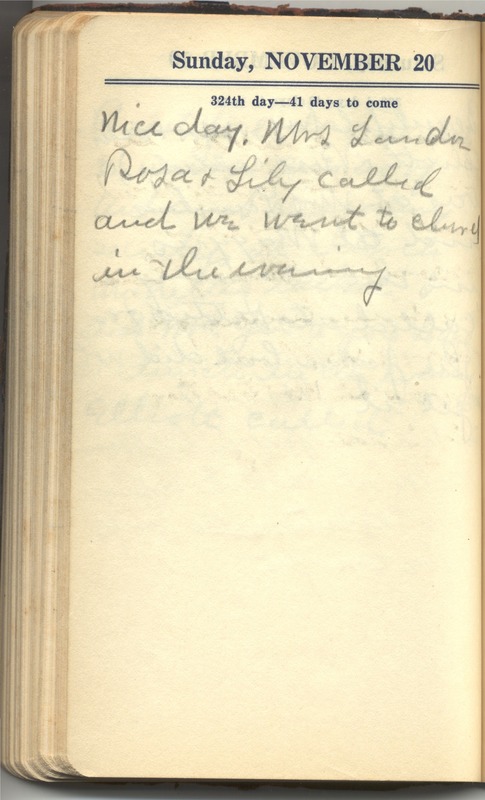 Sunday, NOVEMBER 20
324th day—41 days to come
Nice day. Mrs Lander
Rosa & Lily called
and we went to church
in the evening